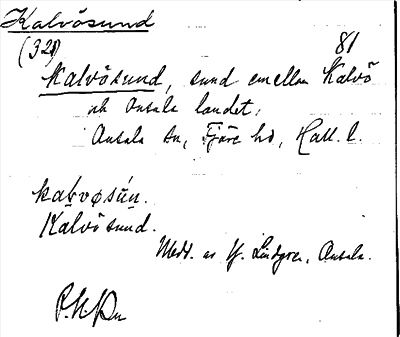 Kalvösund
(32) 81
Kalvösund, sund emellan Kalvö
och Onsala landet,
Onsala sn, Fjäre hd, Hall. l.
kalvøsún.
Kalvösund.
Medd. av Hj. Lindgren, Onsala.